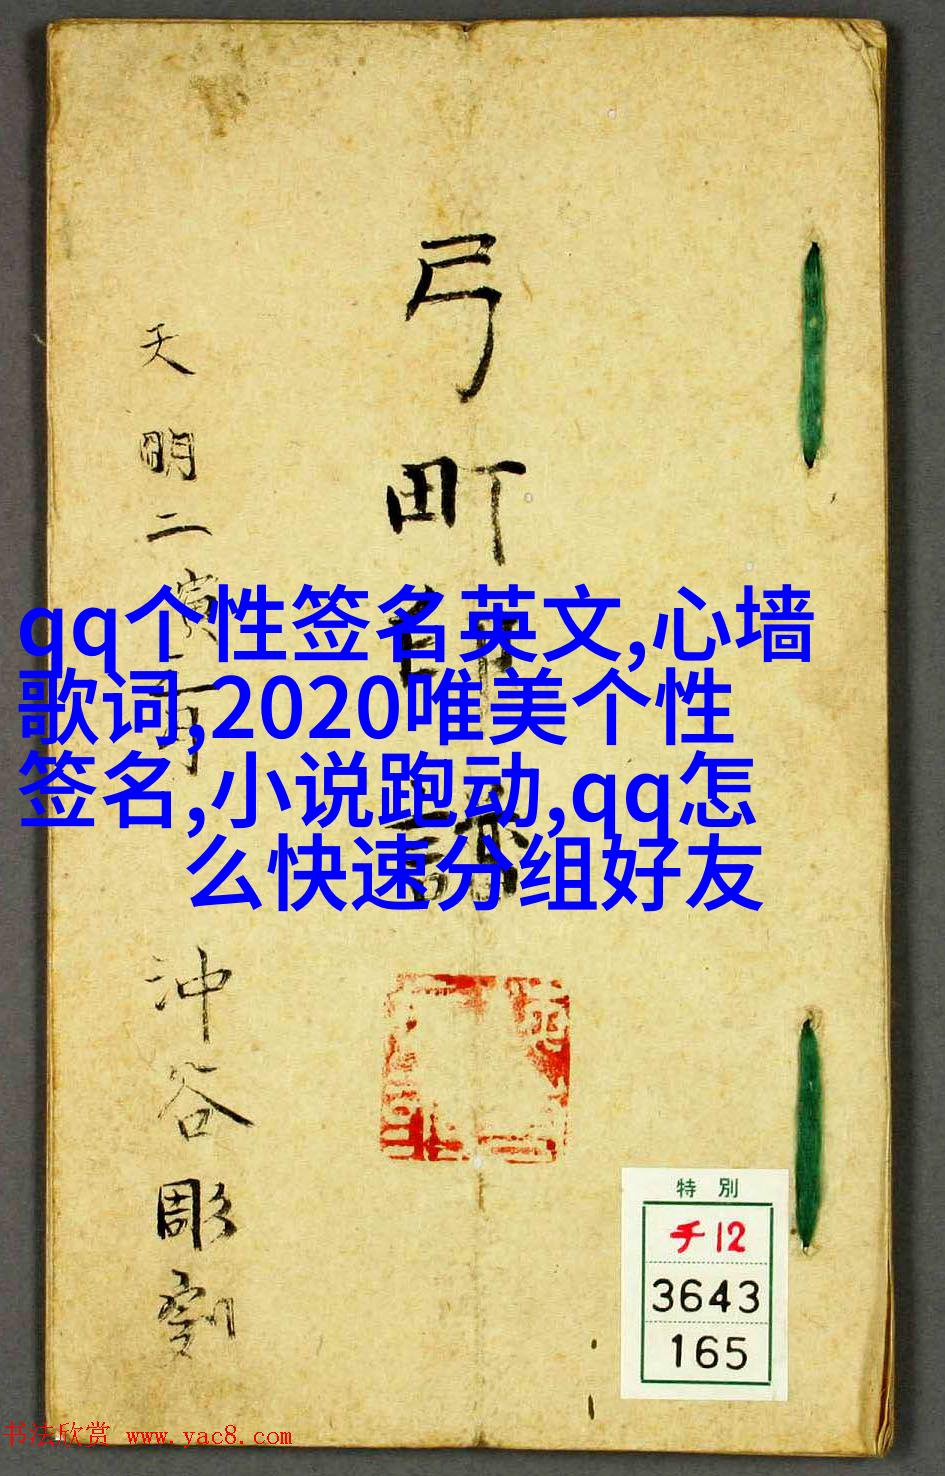 弓町印譜
天明二寅二月
沖谷彫刻
qq个性签名英文,心墙
歌词,2020唯美个性
签名,小说跑动,qq怎
么快速分组好友
特別
チ12
3643
165
书法欣赏 www.yac8.com